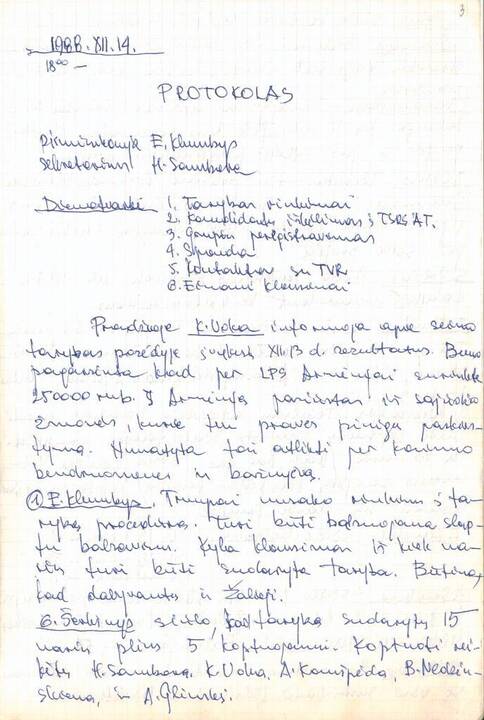 3
1988.XII.14.
18⁰⁰ —
PROTOKOLAS
Pirmininkauja E. Klumbys
Sekretorius H. Sambora
Dienotvarkė 1. Tarybos rinkimai
2. Kandidatų iškėlimas į TSRS AT.
3. Grupių perregistravimas
4. Spauda
5. Kontaktai su TVR
6. Einami klausimai
Pradžioje K. Uoka informuoja apie seimo
tarybos posėdyje įvykusį XII.13 d. rezultatus. Buvo
pagarsinta kad per LPS Armėnijai surinkta
250000 rub. Į Armėniją pasiųstas iš sąjūdžio
žmonės, kurie ten praves pinigų paskirs-
tymą. Numatyta tai atlikti per kaimo
bendruomenes ir bažnyčią.
① E. Klumbys. Trumpai nusako rinkimų į ta-
rybą procedūrą. Turi būti balsuojama slap-
tu balsavimu. Kyla klausimas iš kiek na-
rių turi būti sudaryta taryba. Būtina,
kad dalyvautų ir Žalieji.
siūlo, kad tarybą sudarytų 15
narių plius 5 koptuojami. Koptuoti rei-
kėtų H. Sambora, K. Uoka, A. Karnipėda,
ir A. Glinskį.